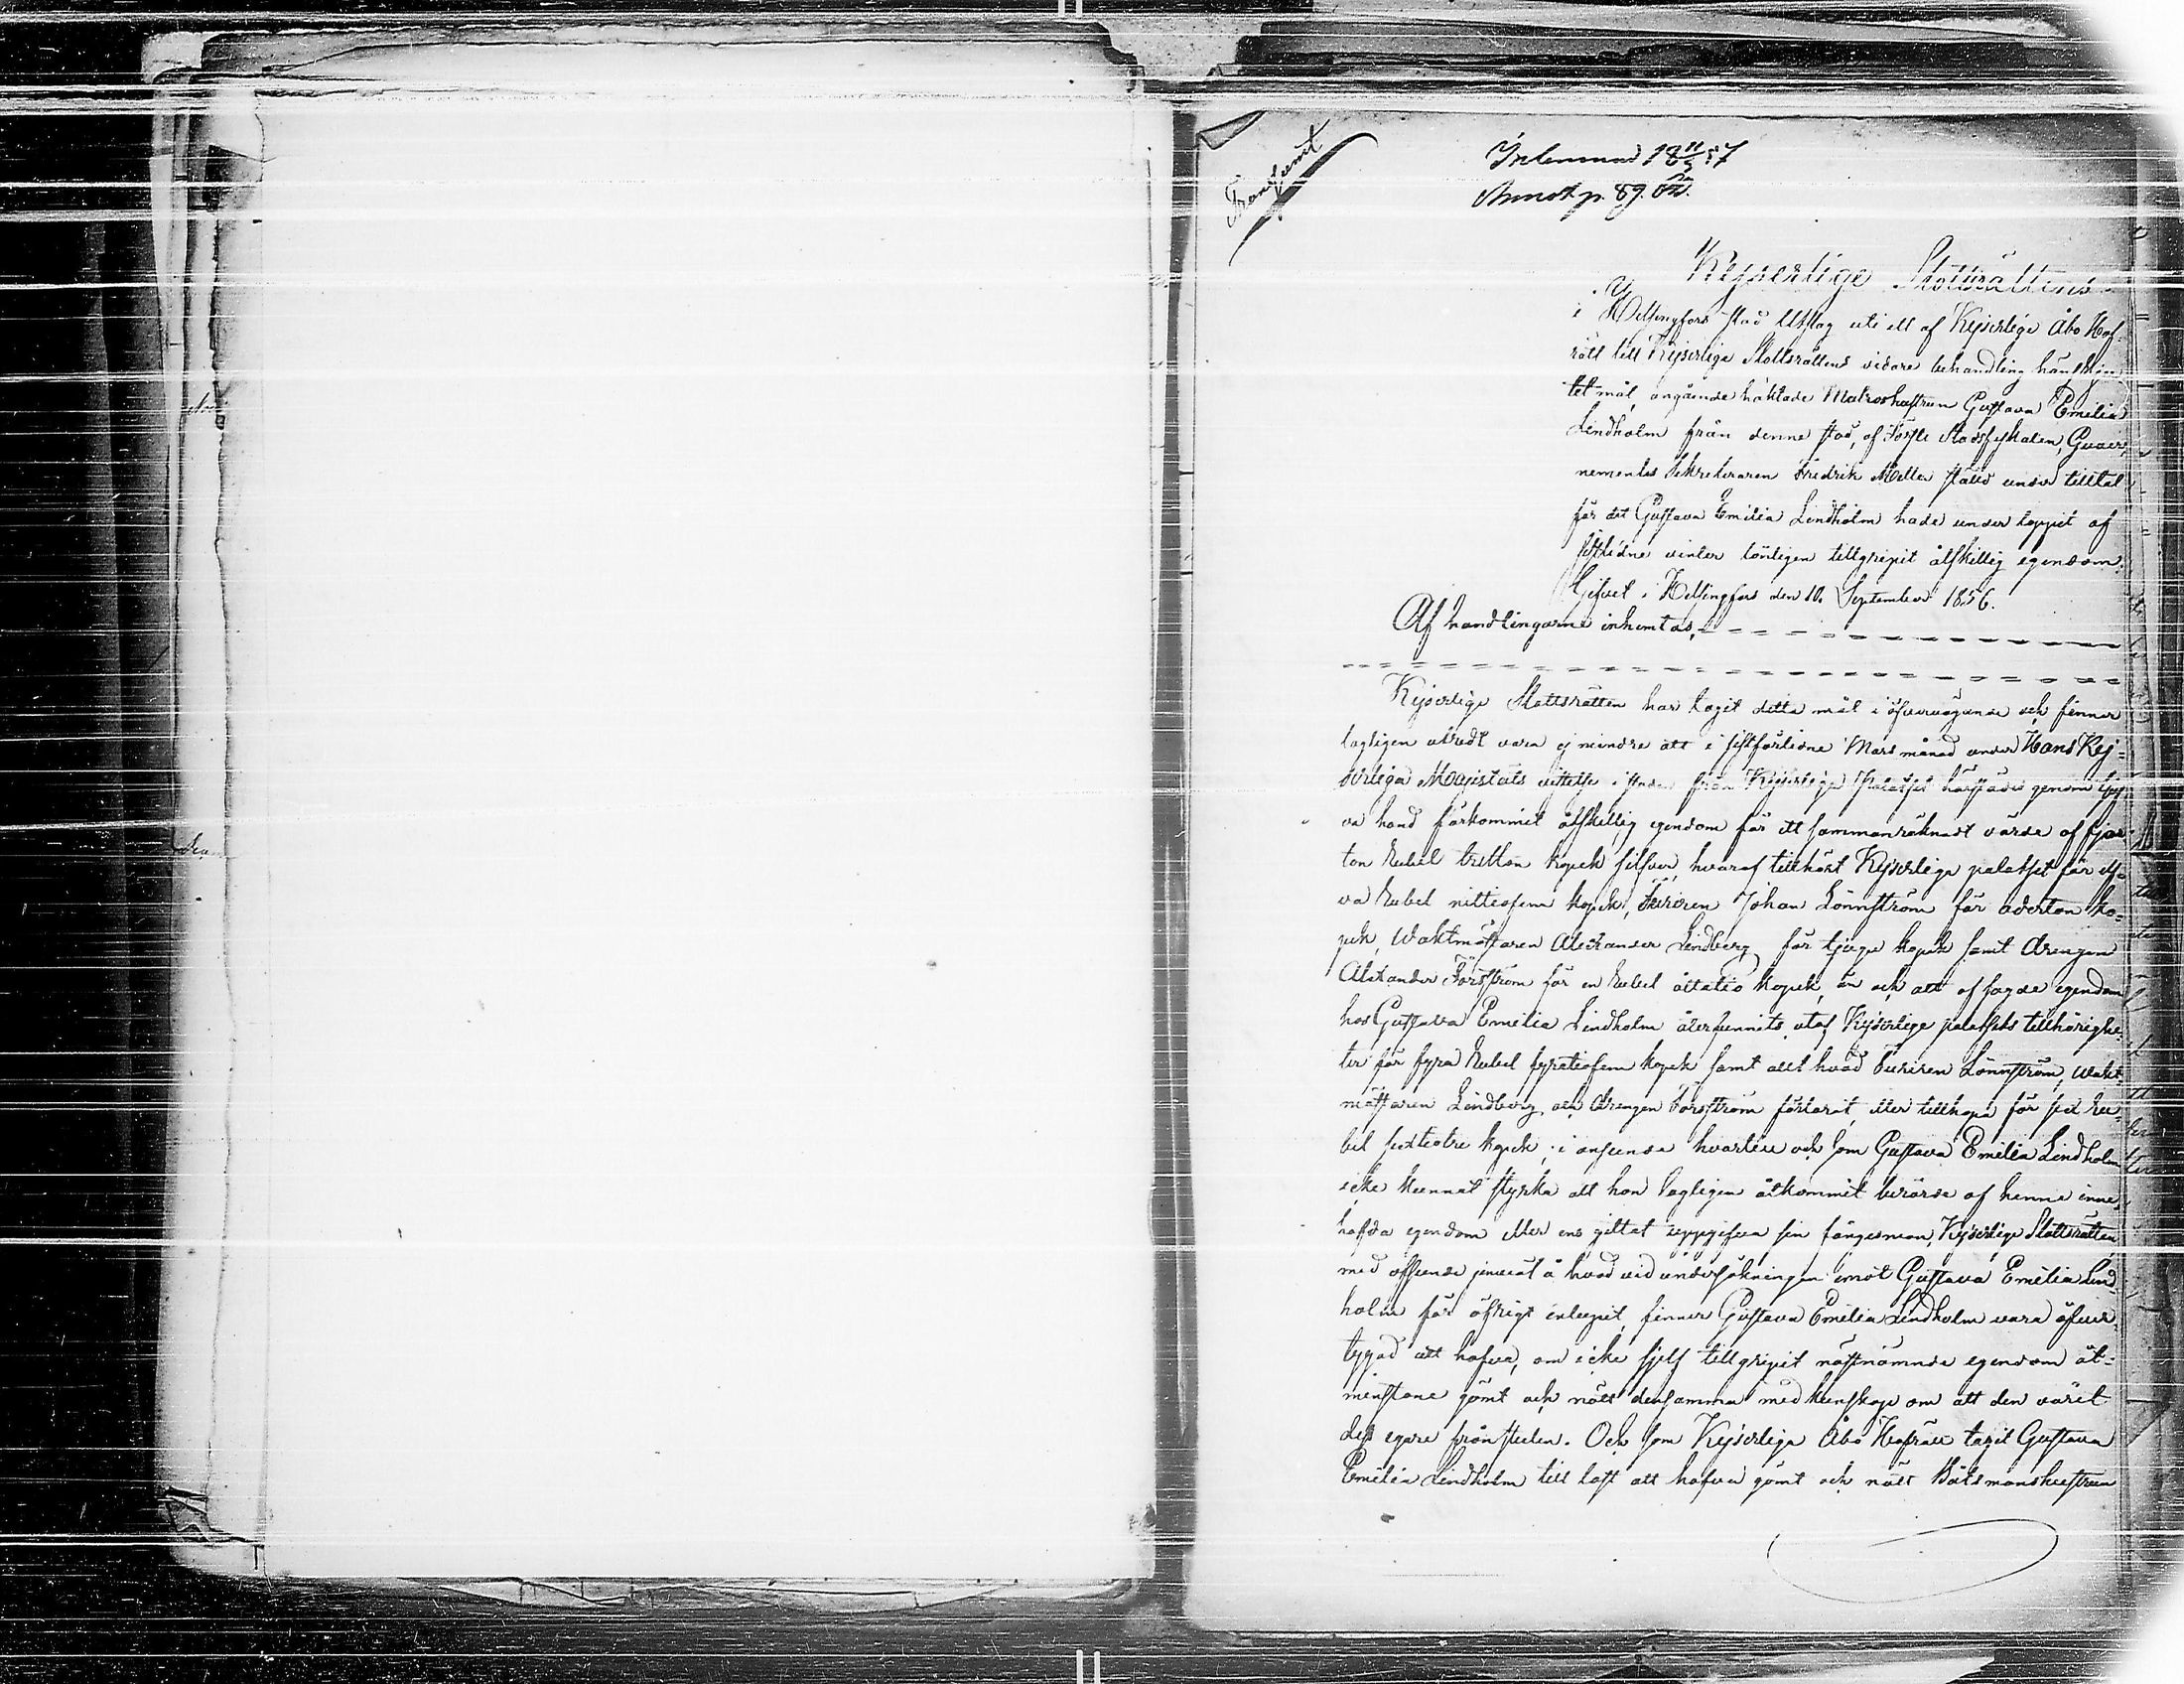 Transsumt
Inkommit 18 11/3 57
Annot p. 89.
Kejserlige Slottsrättens
i Helsingfors stad Utslag uti ett af Kejserlige Åbo Hof-
rätt till Kejserlige Slottsrättens vidare behandling hänskju-
tet mål, angående häktade Matroshustrun Gustava Emilia
Lindholm från denne stad, af Förste Stadsfiskalen, Guver-
nements Sekreteraren Fredrik Meller stäld under tilltal
för det Gustava Emilia Lindholm hade under loppet af
sistlidne vinter lönligen tillgripit åtskillig egendom.
Gifvet i Helsingfors den 10. September 1856.
Af handlingarne inhemtas,
Kejserlige Slottsrätten har tagit detta mål i öfvervägande och finner
lagligen utredt vara ej mindre att i sistförlidne Mars månad under Hans Kej-
serliga Majestäts vistelse i staden från Kejserliga Palatset härstädes genom tju-
va hand förkommit åtskillig egendom för ett sammanräknadt värde af fjor-
ton Rubel tretton kopek silfver, hvaraf tillhört Kejserlige palatset för elf-
va Rubel nittiofem kopek, Furiren Johan Lönnström för aderton ko-
pek, Waktmästaren Alexander Lindberg för tjugu kopek samt drengen
Alexander Forsström för en Rubel åttatio kopek, än och att af sagde egendom
hos Gustava Emilia Lindholm återfunnits utaf Kejserlige palatsets tillhörighe-
ter för fyra Rubel fyratiofem kopek samt allt hvad Furiren Lönnström, Wakt-
mästaren Lindberg och drengen Forsström förlorat, eller tillhopa för sex Ru-
bel sextiotre kopek; i anseende hvartill och som Gustava Emilia Lindholm
icke kunnat styrka att hon lagligen åtkommit berörde af henne inne-
hafda egendom eller ens gittat uppgifva sin fångesman, Kejserlige Slottsrätten
med afseende jemväl å hvad vid undersökningen emot Gustava Emilia Lind-
holm för öfrigt inlupit, finner Gustava Emilia Lindholm vara öfver-
tygad att hafva, om icke sjelf tillgripit nästnämnde egendom åt-
minstone gömt och nött densamma med kunskap om att den varit
dess egare frånstulen. Och som Kejserliga Åbo Hofrätt tagit Gustava
Emilia Lindholm till last att hafva gömt och nött Båtsmanshustrun